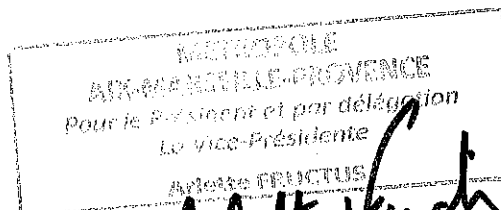 METROPOLE
AIX-MARSEILLE-PROVENCE
Pour le Président et par délégation
La Vice-Présidente
Arlette FRUCTUS